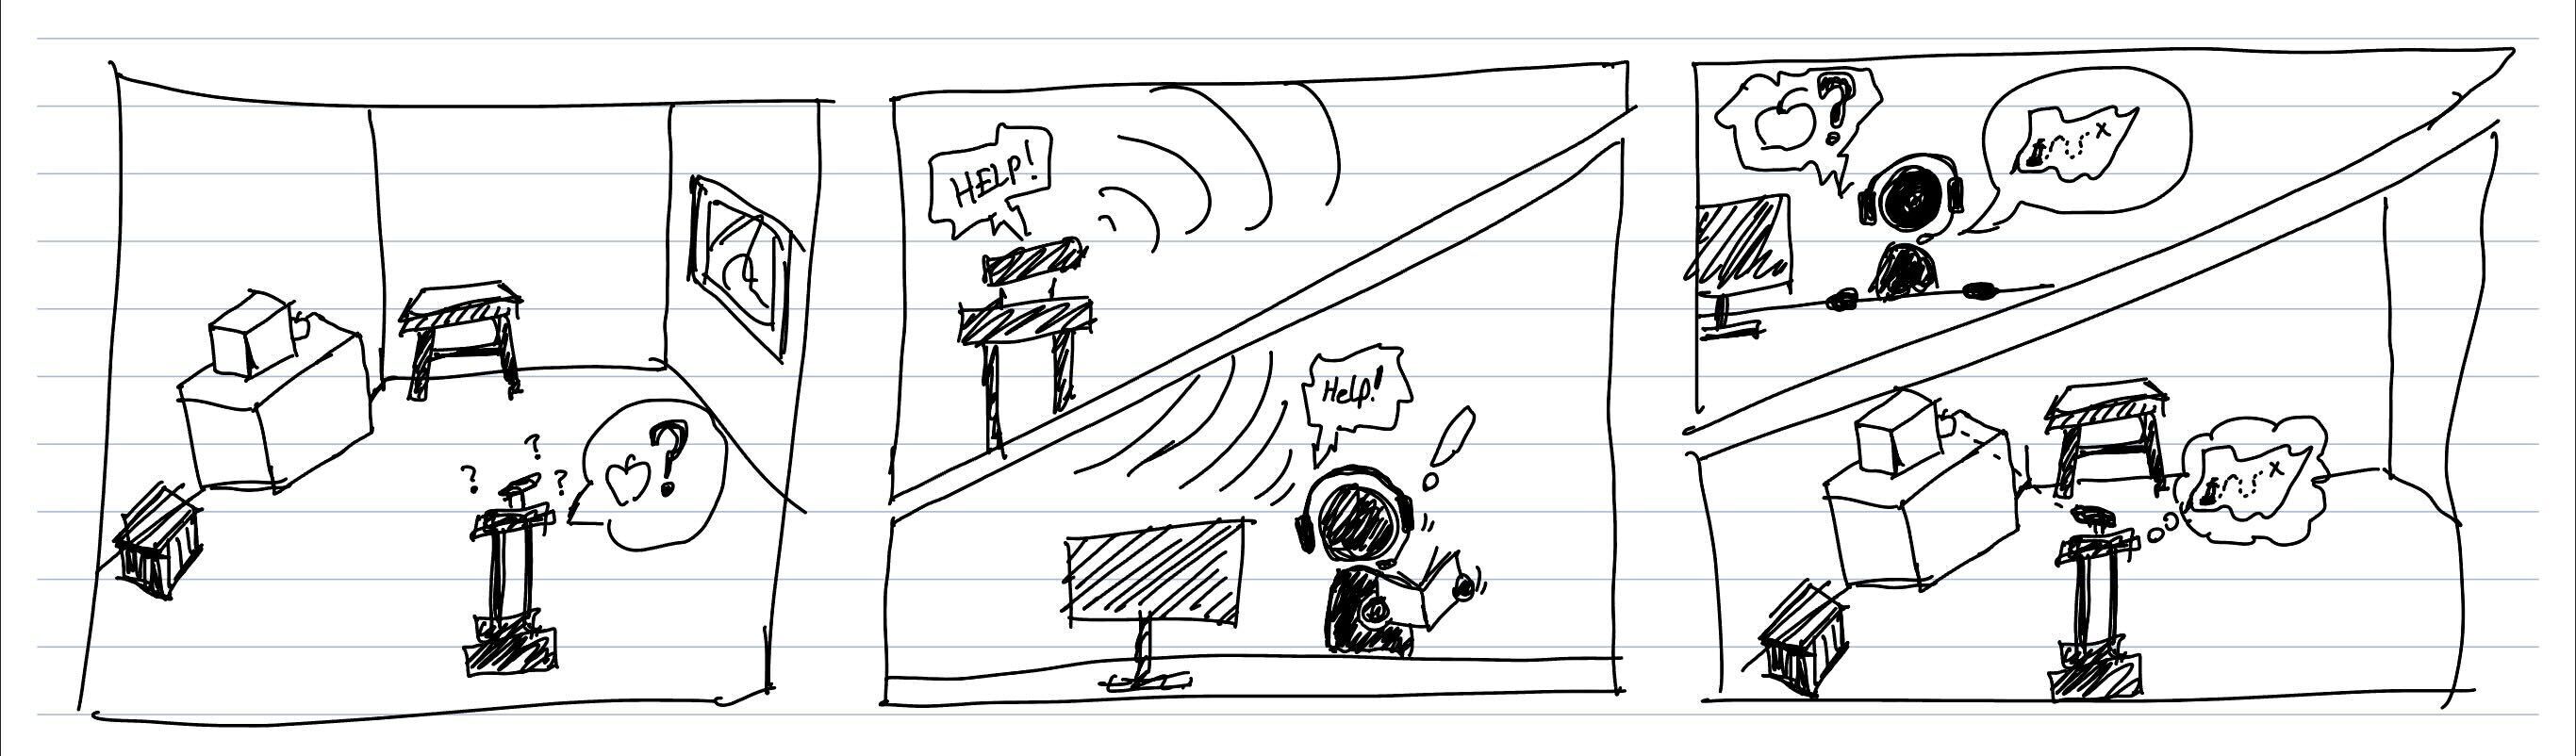 ?
?
?
?
HELP!
Help!
!
?
x
x